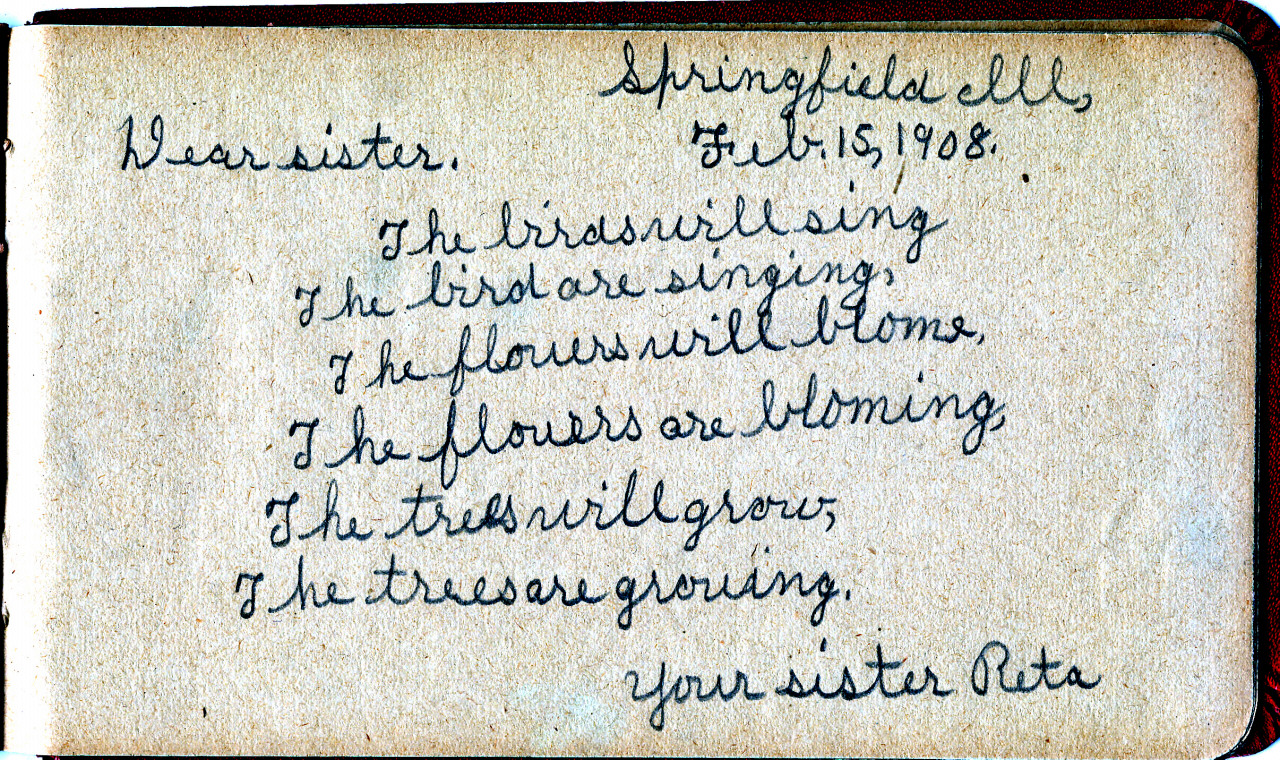 Springfield Ill,
Dear sister. Feb. 15, 1908.
The birds will sing
The bird are singing,
The flowers will blome,
The flowers are bloming,
The trees will grow,
The trees are growing.
Your sister Reta